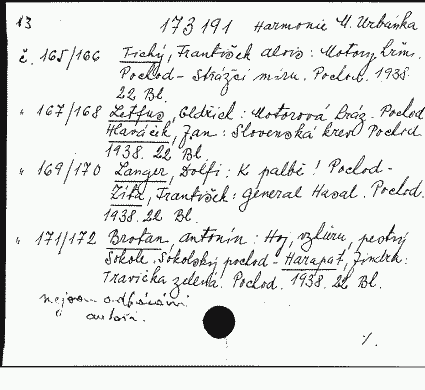 13
173191 Harmonie U. Urbánka
č. 165/166 Tichý, František Alois: Motory hřm.
Pochod - Strážci míru. Pochod. 1938.
22 Bl.
" 167/168 Letfus, Oldřich: Motorová Pochod
Hlaváček, Jan: Slovenská krev Pochod
1938. 22 Bl.
" 169/170 Langer, Dolfi: K palbě! Pochod -
Zita, František: General Hasal. Pochod.
1938. 22 Bl.
" 171/172 Brotan, Antonín: Hoj, vzhůru, pestrý
Sokole. Sokolský pochod - Harapat, Jindrh:
Travička zelená. Pochod. 1938. 22 Bl.
nejsou
" autoři.